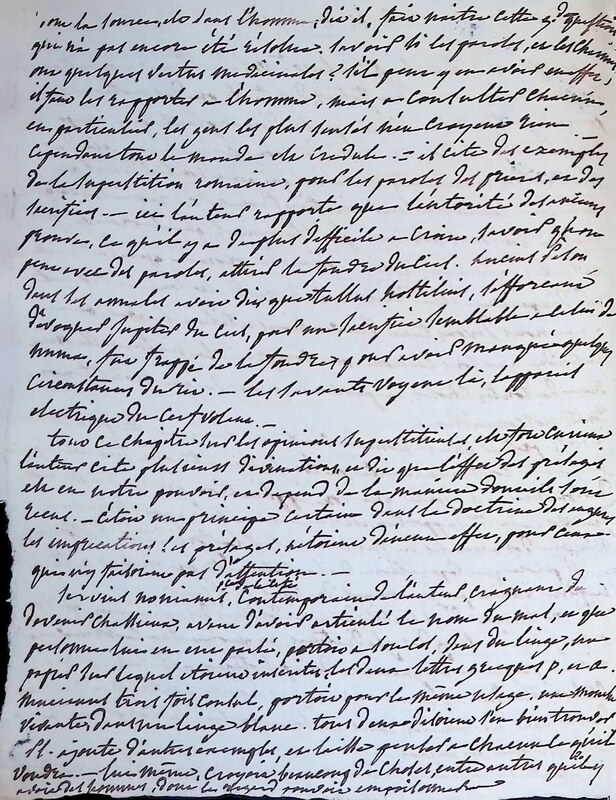 la source, et dans l'homme, dit il, fait naitre cette gde question
qui n'a pas encore été résolue. savoir si les paroles, et les charmes
ont quelques vertus medicinales? s'il peut y en avoir en effet
il faut les rapporter a l'homme, mais a consulter chacun
en particulier, les gens les plus sensés n'en croyent rien
cependant tout le monde est credule. = il cite des exemples
de la superstition romaine, pour les paroles des prieres, et des
sacrifices — ici l'auteur rapporte que l'autorité des anciens
prouve, ce qu'il y a de plus difficile a croire, savoir qu'on
peut avec des paroles, attirer la foudre du ciel. Lucius Pison
dans ses annales avoit dit que tullus hostilius, s'efforcant
d'évoquer jupiter du ciel, par un sacrifice semblable a celui de
numa, fut frappé de la foudre pour avoir manqué quelques
circonstances du rit. — les savants voyent la, l'appareil
electrique du cerf volant. —
tout ce chapitre sur les opinions superstitieuses est fort curieux
l'auteur cite plusieurs divinations, et dit que l'effet des présages
est en notre pouvoir, et depend de la maniere dont ils sont
recus. — c'étoit un principe certain dans la doctrine des augures
les imprécations! et présages, n'etoient d'aucun effet, pour ceux
qui n'y faisoient pas d'attention. —
servius nonianus, contemporain de l'auteur, craignant de
devenir chassieux, avant d'avoir articulé le nom du mal, et que
personne lui en eut parlé, portoit a son col, dans du linge, un
papier sur lequel etoient inscrites les deux lettres grecques p, et a.
mucianus trois fois consul, portoit pour le même usage, une mouche
vivante dans un linge blanc. tous deux disoient s'en bien trouver
Pl. ajoute d'autres exemples, et laisse penser a chacun ce qu'il
voudra. — lui même, croyoit beaucoup de choses, entre autres qu'il y
avoit des hommes, dont le regard pouvoit empoisonner